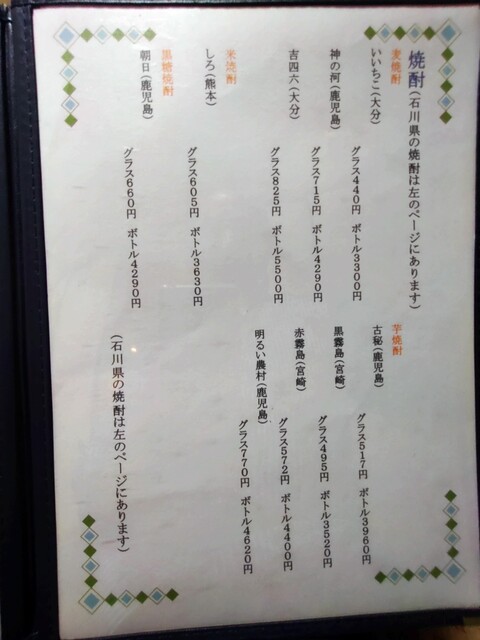 焼酎(石川県の焼酎は左のページにあります)
麦焼酎
いいちこ(大分)
グラス440円 ボトル3300円
神の河(鹿児島)
グラス715円 ボトル4290円
吉四六(大分)
グラス825円 ボトル5500円
米焼酎
しろ(熊本)
グラス605円 ボトル3630円
黒糖焼酎
朝日(鹿児島)
グラス660円 ボトル4290円
芋焼酎
古秘(鹿児島)
グラス517円 ボトル3960円
黒霧島(宮崎)
グラス495円 ボトル3520円
赤霧島(宮崎)
グラス572円 ボトル4400円
明るい農村(鹿児島)
グラス770円 ボトル4620円
(石川県の焼酎は左のページにあります)